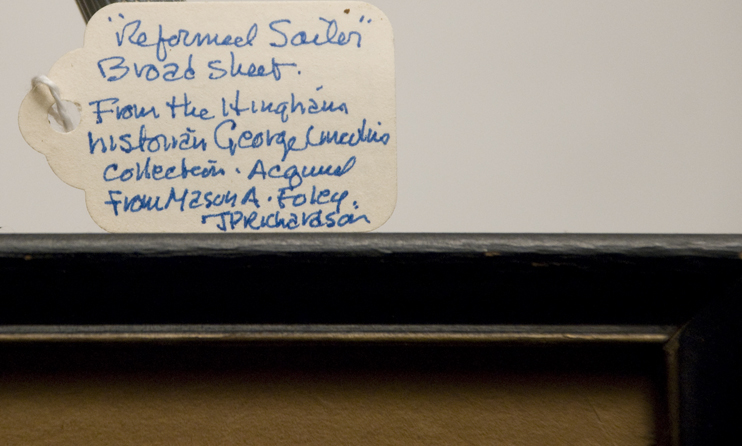 "Reformed Sailor"
Broad sheet.
From the Hingham
historian George Lincoln's
collection. Acquired
From Mason A. Foley.
JPRichardson